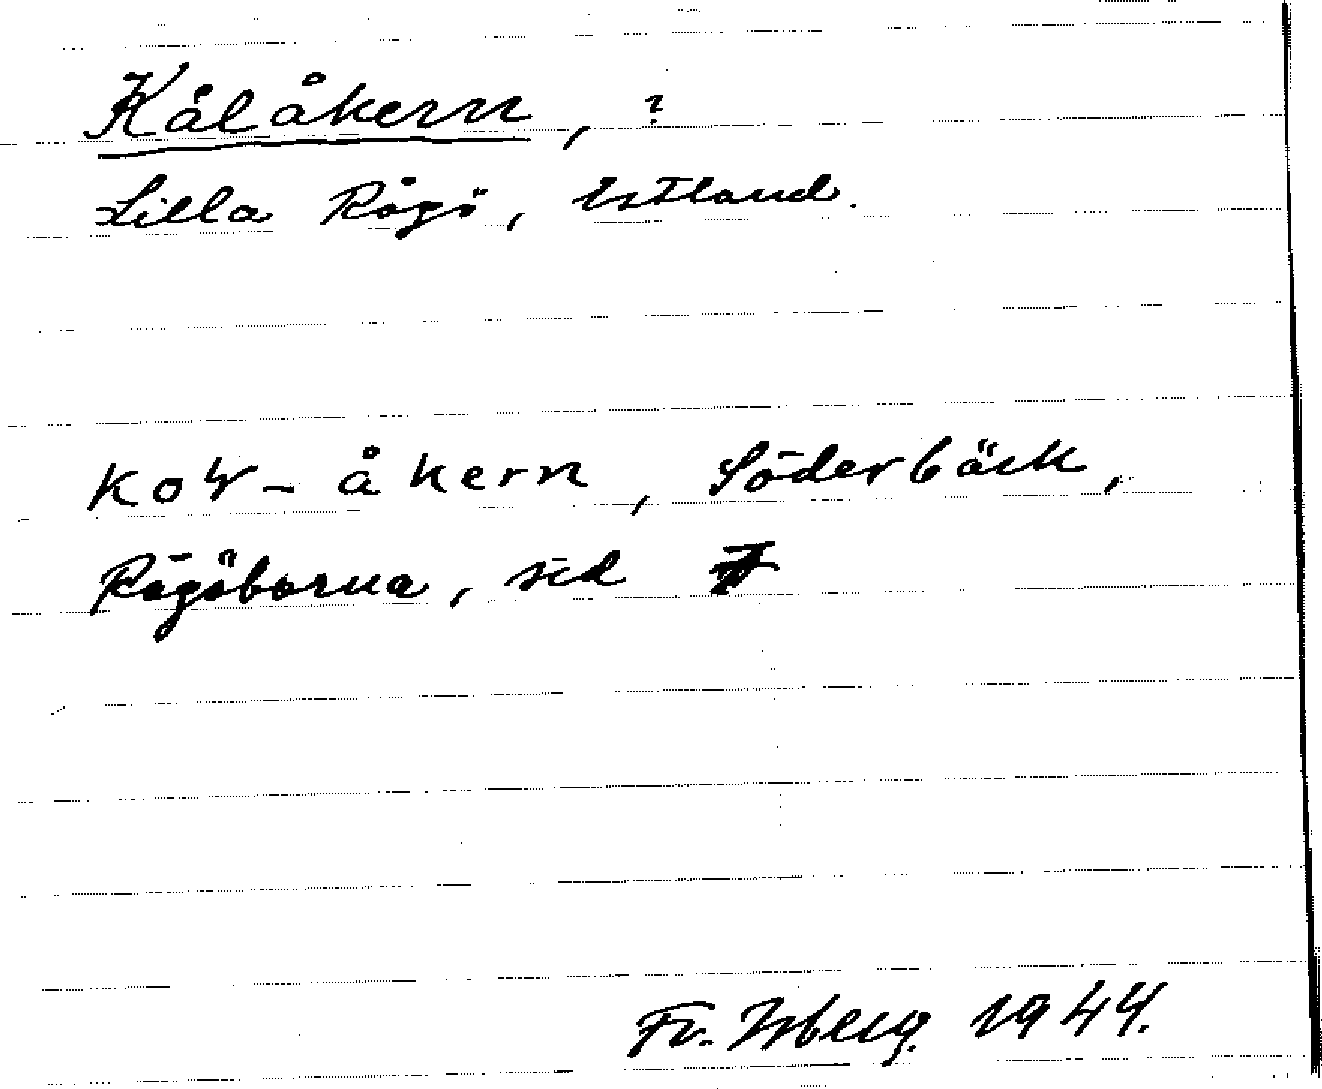 Kålåkern, ?
Lilla Rågö, Estland.
Ko - åkern, Söderbäck,
Rågöborna, sid
Fr. Isberg. 1944.